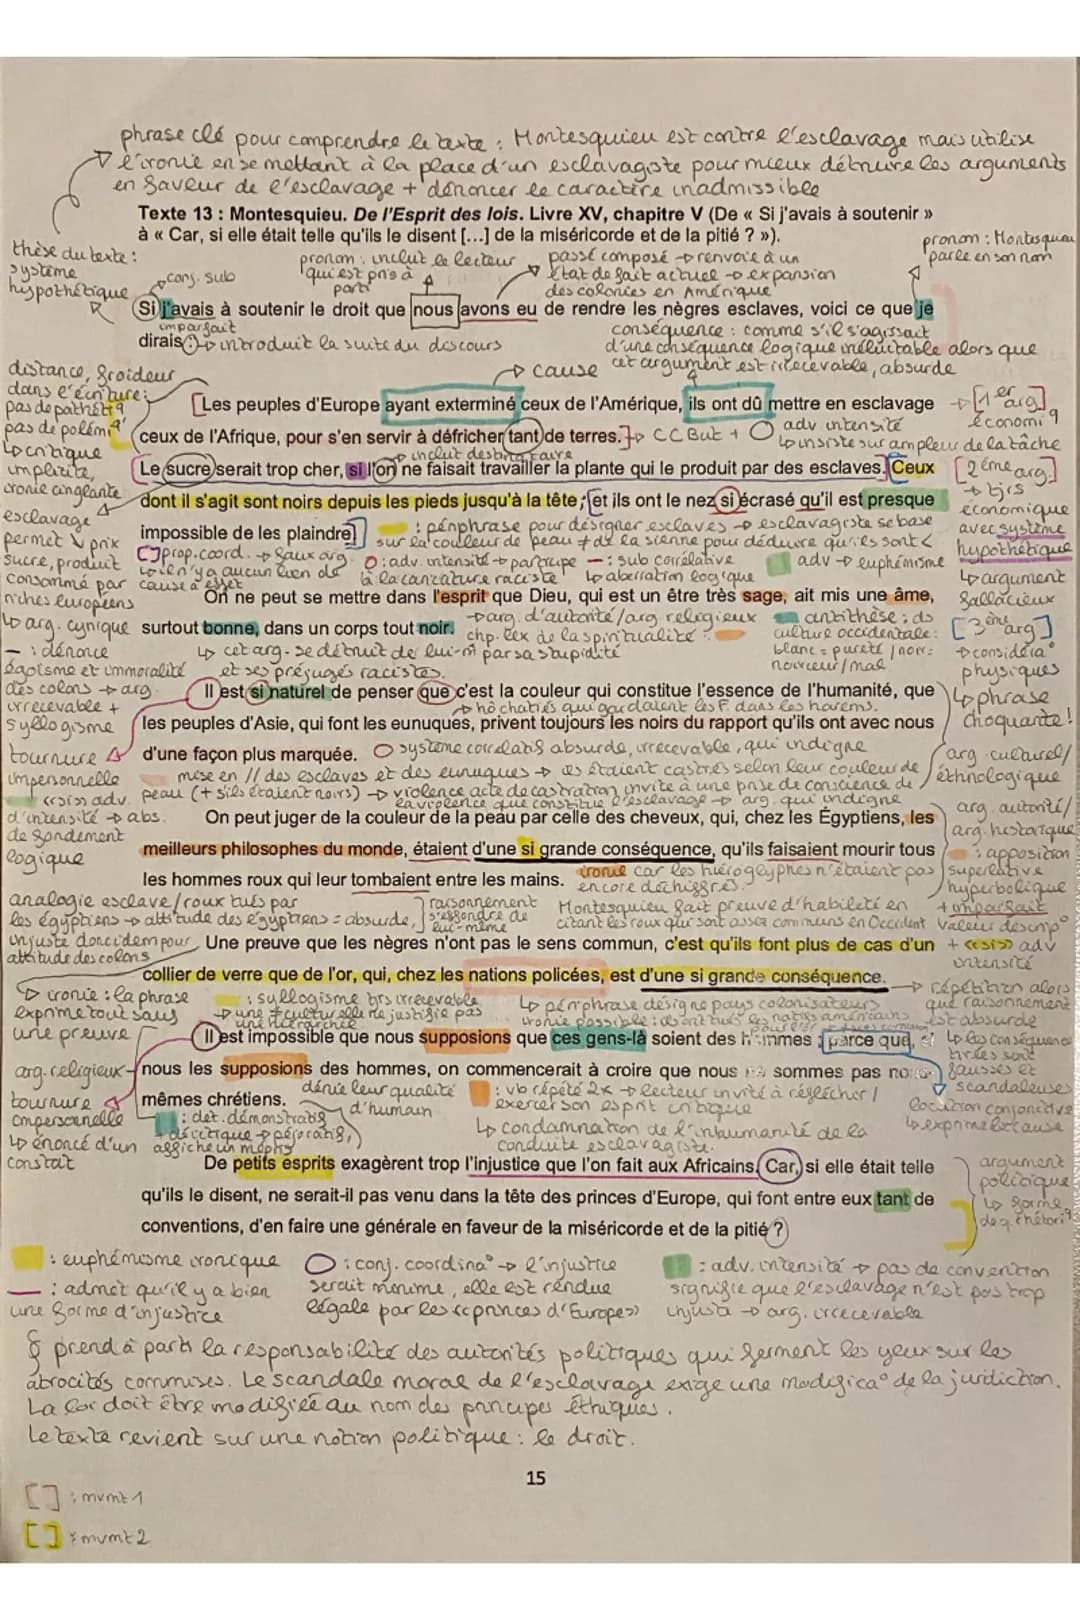 phrase clé pour comprendre le texte : Montesquieu est contre l'esclavage mais utilise
l'ironie en se mettant à la place d'un esclavagiste pour mieux détruire les arguments
en faveur de l'esclavage + dénoncer le caractère inadmissible
Texte 13 : Montesquieu. De l'Esprit des lois. Livre XV, chapitre V (De « Si j'avais à soutenir »
à « Car, si elle était telle qu'ils le disent [...] de la miséricorde et de la pitié ? »).
thèse du texte :
système
hypothétique
conj. sub
pronom : inclut le lecteur
qui est pris à
parti
passé composé → renvoie à un
état de fait actuel → expansion
des colonies en Amérique
pronom : Montesquieu
parle en son nom
Si j'avais à soutenir le droit que nous avons eu de rendre les nègres esclaves, voici ce que je
imparfait
dirais : → introduit la suite du discours
conséquence : comme s'il s'agissait
d'une conséquence logique inéluctable alors que
cet argument est irrecevable, absurde
→ cause
distance, froideur
dans l'écriture :
pas de pathétiq
pas de polémiq
↳ critique
implicite,
ironie cinglante
Les peuples d'Europe ayant exterminé ceux de l'Amérique, ils ont dû mettre en esclavage
→ [1er arg]
économiq
ceux de l'Afrique, pour s'en servir à défricher tant de terres. → CC But +
adv intensité
↳ insiste sur ampleur de la tâche
↳ inclut destinataire
Le sucre serait trop cher, si l'on ne faisait travailler la plante qui le produit par des esclaves. Ceux
[2ème arg]
→ tjrs
économique
avec système
hypothétique
↳ argument
fallacieux
dont il s'agit sont noirs depuis les pieds jusqu'à la tête ; et ils ont le nez si écrasé qu'il est presque
impossible de les plaindre
: périphrase pour désigner esclaves → esclavagiste se base
sur la couleur de peau ≠ de la sienne pour déduire qu'ils sont <
[] prop. coord. → faux arg.
↳ il n'y a aucun lien de
cause à effet
O : adv. intensité → participe
à la caricature raciste
— : sub corrélative
↳ aberration logique
adv → euphémisme
esclavage
permet ↓ prix
sucre, produit
consommé par
riches européens
↳ arg. cynique
— : dénonce
égoïsme et immoralité
des colons → arg.
irrecevable +
syllogisme
On ne peut se mettre dans l'esprit que Dieu, qui est un être très sage, ait mis une âme,
surtout bonne, dans un corps tout noir.
→ arg. d'autorité/arg religieux
chp. lex de la spiritualité :
antithèse : ds
culture occidentale :
blanc = pureté / noir =
noirceur/mal
[3ème arg]
→ considéra°
physiques
↳ phrase
choquante !
↳ cet arg. se détruit de lui-m̂ par sa stupidité
et ses préjugés racistes.
Il est si naturel de penser que c'est la couleur qui constitue l'essence de l'humanité, que
→ ho châtrés qui gardaient les F. dans les harems.
les peuples d'Asie, qui font les eunuques, privent toujours les noirs du rapport qu'ils ont avec nous
d'une façon plus marquée.
O système corrélatif absurde, irrecevable, qui indigne
arg. culturel/
ethnologique
tournure
impersonnelle
« si » adv.
d'intensité → abs.
de fondement
logique
mise en // des esclaves et des eunuques → ils étaient castrés selon leur couleur de
peau (+ s'ils étaient noirs) → violence acte de castration invite à une prise de conscience de
la violence que constitue l'esclavage → arg. qui indigne
On peut juger de la couleur de la peau par celle des cheveux, qui, chez les Égyptiens, les
arg. autorité/
arg. historique
meilleurs philosophes du monde, étaient d'une si grande conséquence, qu'ils faisaient mourir tous
: apposition
superlative
hyperbolique
+ imparfait
valeur descrip°
+ « si » adv
intensité
les hommes roux qui leur tombaient entre les mains.
ironie car les hiéroglyphes n'étaient pas
encore déchiffrés.
analogie esclave/roux tués par
les égyptiens → attitude des égyptiens = absurde,
injuste donc idem pour
attitude des colons
raisonnement
s'effondre de
lui-même
Montesquieu fait preuve d'habileté en
citant les roux qui sont assez communs en Occident
Une preuve que les nègres n'ont pas le sens commun, c'est qu'ils font plus de cas d'un
collier de verre que de l'or, qui, chez les nations policées, est d'une si grande conséquence.
→ répétition alors
que raisonnement
est absurde
↳ les conséquences
tirées sont
fausses et
scandaleuses
→ ironie : la phrase
exprime tout sauf
une preuve
: syllogisme tjrs irrecevable
→ une ≠ culturelle ne justifie pas
une hiérarchie
↳ périphrase désigne pays colonisateurs
Il est impossible que nous supposions que ces gens-là soient des hommes ; parce que, si
nous les supposions des hommes, on commencerait à croire que nous ne sommes pas nous-
mêmes chrétiens.
arg. religieux
tournure
impersonnelle
↳ énoncé d'un
constat
dénie leur qualité
d'humain
: dét. démonstratif
+ déictique → péjoratif,
affiche un mépris
: vb répété 2x → lecteur invité à réfléchir /
exercer son esprit critique
↳ condamnation de l'inhumanité de la
conduite esclavagiste.
locution conjonctive
↳ exprime la cause
De petits esprits exagèrent trop l'injustice que l'on fait aux Africains. Car, si elle était telle
qu'ils le disent, ne serait-il pas venu dans la tête des princes d'Europe, qui font entre eux tant de
conventions, d'en faire une générale en faveur de la miséricorde et de la pitié ?
argument
politique
↳ forme
de q. rhétoriq
: euphémisme ironique
— : admet qu'il y a bien
une forme d'injustice
O : conj. coordina° → l'injustice
serait minime, elle est rendue
légale par les « princes d'Europe »
: adv. intensité → pas de convention
signifie que l'esclavage n'est pas trop
injuste → arg. irrecevable
§ prend à parti la responsabilité des autorités politiques qui ferment les yeux sur les
atrocités commises. Le scandale moral de l'esclavage exige une modifica° de la juridiction.
La loi doit être modifiée au nom des principes éthiques.
Le texte revient sur une notion politique : le droit.
15
[] : mvmt 1
[] : mvmt 2